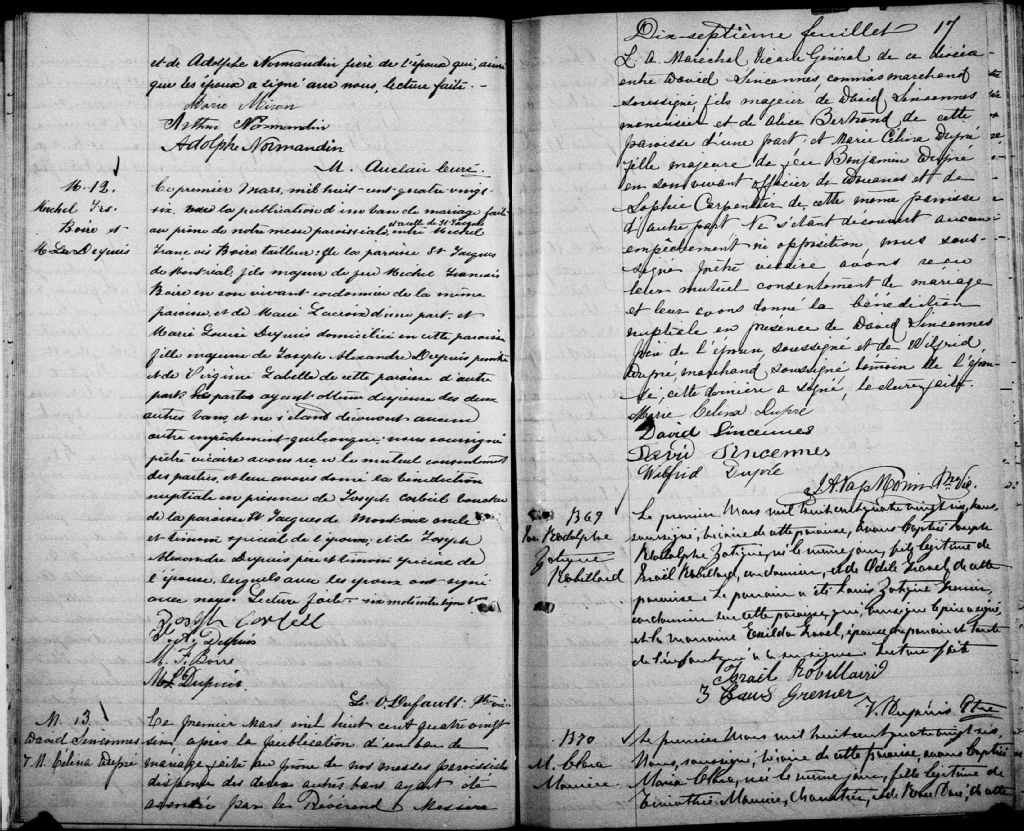 et de Adolphe Normandin frère de l'époux qui, ainsi
que les époux a signé avec nous, lecture faite. -
Marie Miron
Arthur Normandin
Adolphe Normandin
M. Auclair Curé.
M. 12.
Michel Frs.
Boire et
M. Lse Depuis
Ce premier Mars, mil huit-cent-quatre vingt-
six. la publication d'un ban de mariage fait
et à celle de St Jacques
au prône de notre messe paroissiale, entre Michel
François Boire tailleur, de la paroisse St Jacques
de Montréal, fils majeur de feu Michel François
Boire en son vivant cordonnier de la même
paroisse, et de Marie Lacroix d'une part, et
Marie Louise Depuis domiciliée en cette paroisse
fille majeure de Joseph Alexandre Depuis peintre
et de Virginie Labelle de cette paroisse d'autre
part. Les parties ayant obtenu dispense des deux
autres bans, et ne s'étant découvert aucun
autre empêchement quelconque, nous soussigné
prêtre vicaire avons reçu le mutuel consentement
des parties, et leur avons donné la bénédiction
nuptiale en présence de Joseph Corbeil
de la paroisse St Jacques de Montréal oncle
et témoin spécial de l'époux; et de Joseph
Alexandre Depuis père et témoin spécial de
l'épouse, lesquels avec les époux ont signé
avec nous. Lecture faite. six mots entre lignes bons
Joseph Corbeil
J. A. Depuis
M. F. Boire
M L Dupuis
L. O. Dufault. Ptre vic.
M. 13.
David Sincennes
& M. Célina Dupré
Ce premier Mars mil huit cent quatre vingt
six, après la publication d'un ban de
mariage faite au prône de nos messes paroissiales
dispense des deux autres bans ayant été
accordée par le Révérend Messire
Dix-septième feuillet 17
L. A. Maréchal Vicaire Général de ce diocèse
entre David Sincennes, commis marchand
soussigné, fils majeur de David Sincennes
menuisier et de Alice Bertrand de cette
paroisse d'une part, et Marie Célina Dupré
fille majeure de feu Benjamin Dupré
en son vivant officier de Douanes et de
Sophie Carpentier de cette même paroisse
d'autre part. Ne s'étant découvert aucun
empêchement ni opposition, nous sous-
signé prêtre vicaire avons reçu
leur mutuel consentement de mariage
et leur avons donné la bénédiction
nuptiale en présence de David Sincennes
père de l'époux, soussigné et de Wilfrid
Dupré marchand soussigné témoin de l'épou-
se, cette dernière a signé, lecture faite.
Marie Celina Dupré
David Sincennes
David Sincennes
Wilfrid Dupré
J. A. Nap. Morin Ptr. Vic.
B69
Jos. Rodolphe
Zotique
Robillard
Le premier Mars mil huit cent quatre vingt six, nous,
soussigné, vicaire de cette paroisse, avons baptisé Joseph
Rodolphe Zotique, né le même jour, fils légitime de
Israël Robillard, cordonnier, et de Odile Gravel, de cette
paroisse. Le parrain a été Louis Zotique Grenier,
cordonnier de cette paroisse, qui, ainsi que le père a signé,
et la marraine Exilda Gravel, épouse du parrain et tante
de l'enfant qui n'a su signer. Lecture faite
Israël Robillaird
Z Louis Grenier
V. Dupuis Ptre
B70
M. Clara
Mauricre
Le premier Mars mil huit cent quatre vingt six,
Nous, soussigné, vicaire de cette paroisse, avons baptisé
Maria Clara, née le même jour, fille légitime de
Timothée Maurice, charretier, et de Rose, de cette